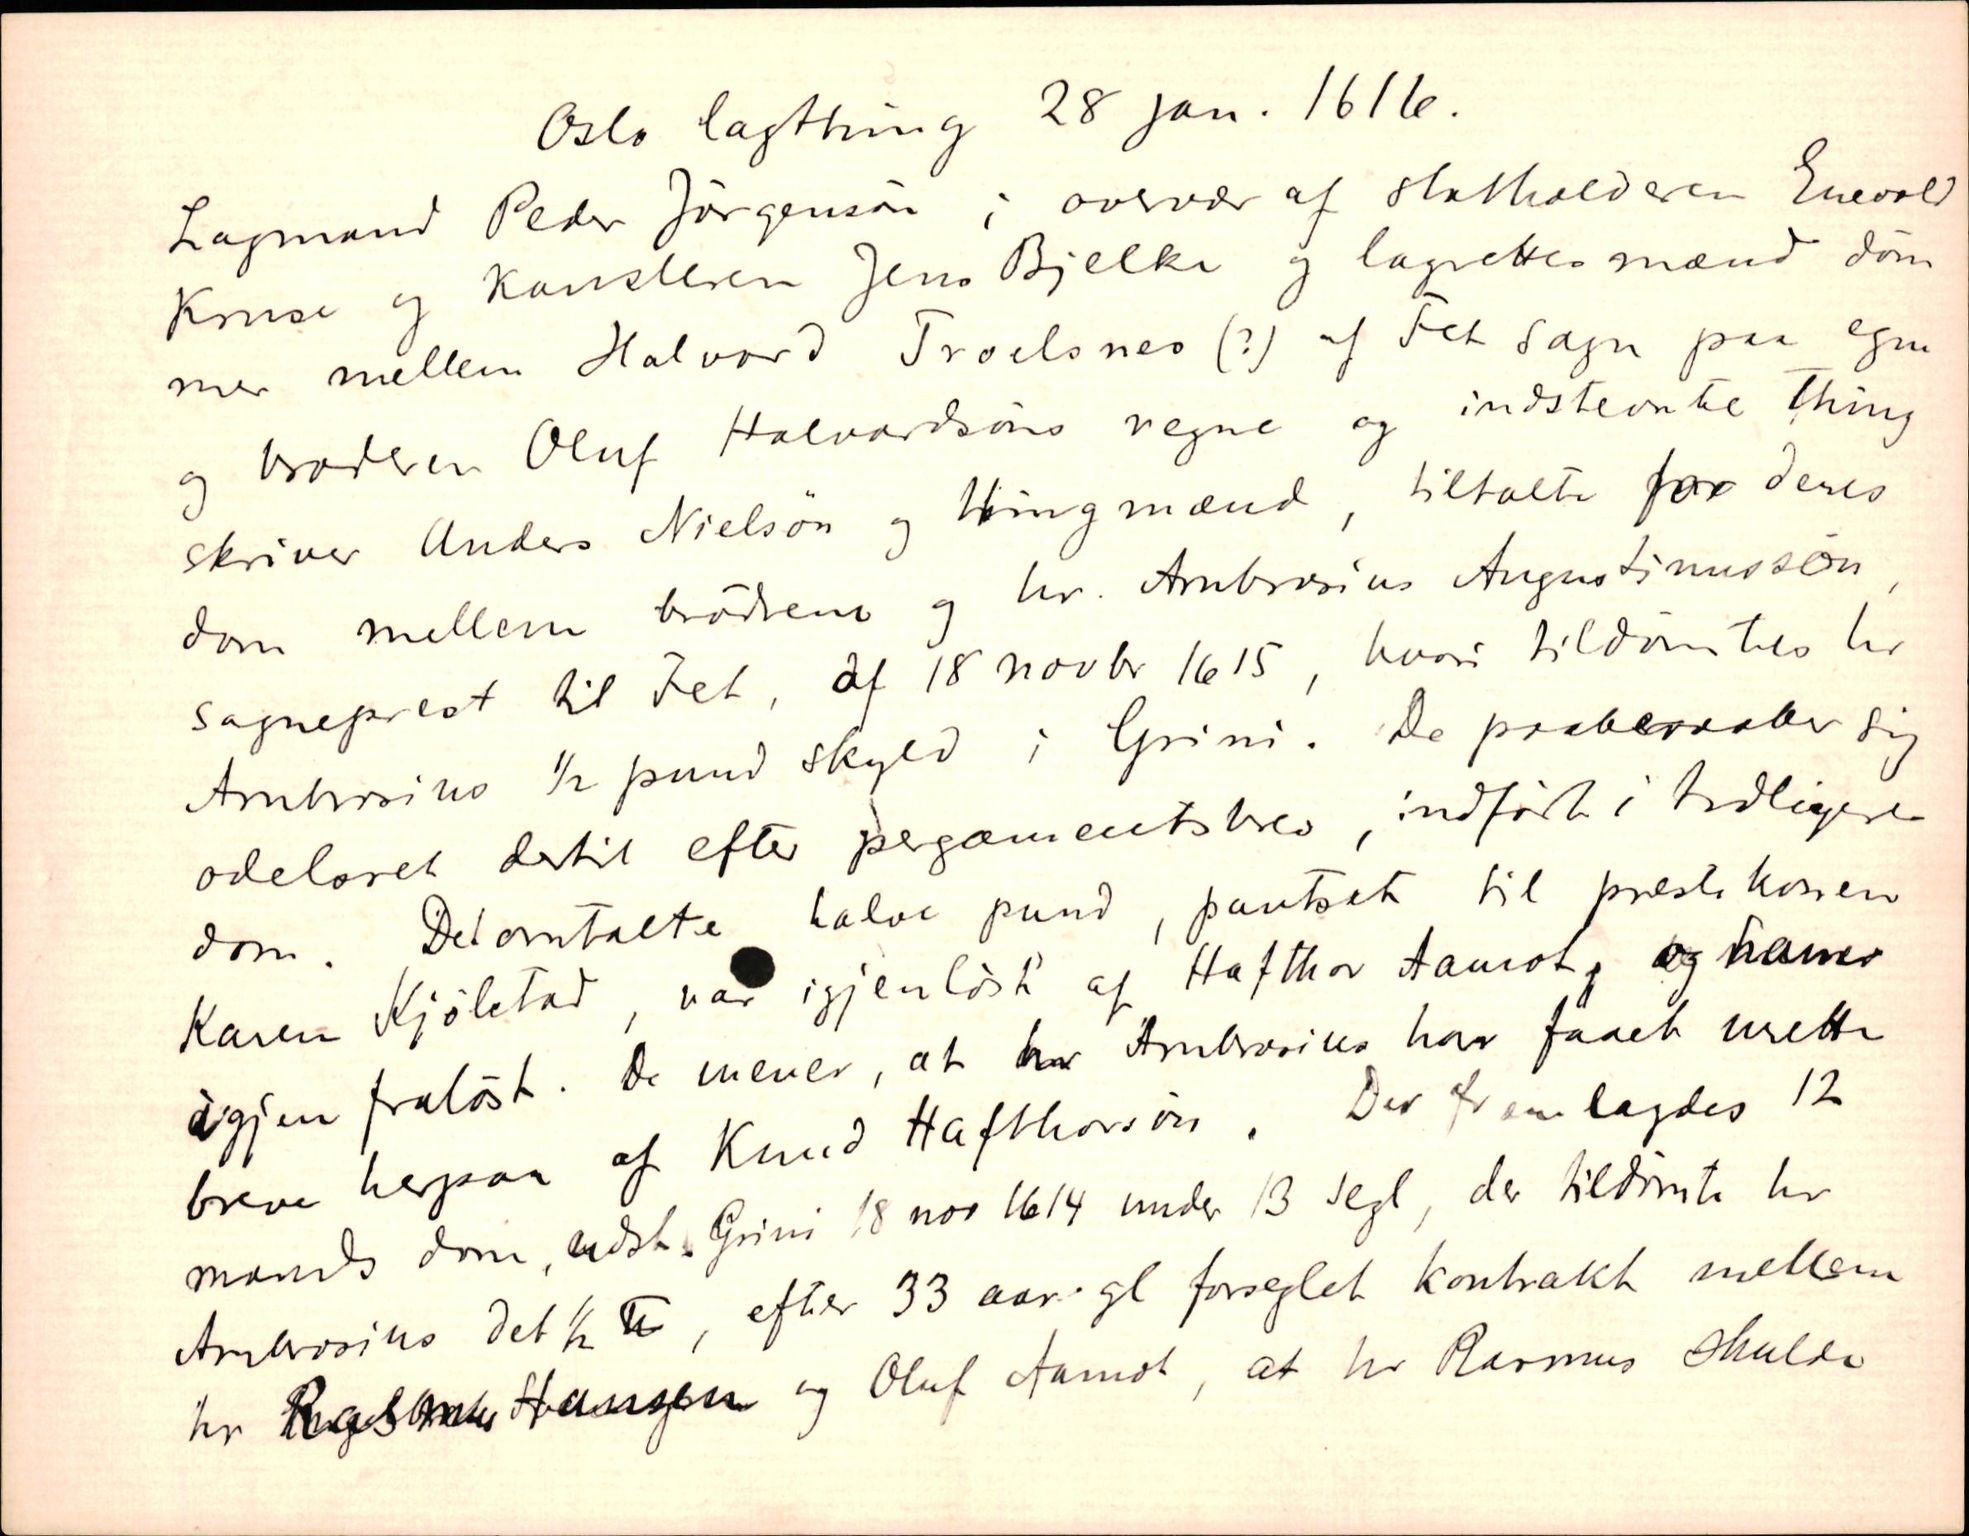 Oslo lagthing 28 jan. 1616.
Lagmand Peder Jörgensön i overvær af statholderen Enevold
Kruse og Kansleren Jens Bjelke og lagrettesmænd döm
mer mellem Halvord Troelsnes (?) af Fet sagn paa egne
og broderen Oluf Halvordsöns vegne og indstevnte Thing
skriver Anders Nielsön og thingmænd, tiltalte for deres
dom mellem brödrene og hr. Ambrosius Augustinussön,
sogneprest til Fet, af 18 novbr 1615, hvori tildömtes hr
Ambrosius 1/2 pund skyld i Grini. De paaberaaber sig
odelsret dertil efter pergamentsbrev, indfört i tidligere
dom. Det omtalte halve pund, pantsat til prestekonen
Karen Kjölstad, var igjenlöst af Hafthor Aamot, og hanes
igjen fralöst. De mener, at hr Ambrosius har faaet urette
breve herpaa af Knud Hafthorsön. Der fremlagdes 12
mands dom, udst. Grini 18 nov 1614 under 13 segl, der tildömte hr
Ambrosius det 1/2 ℔, efter 33 aar gl forseglet kontrakt mellem
hr Rasmus Hansen og Oluf Aamot, at hr Rasmus skulde